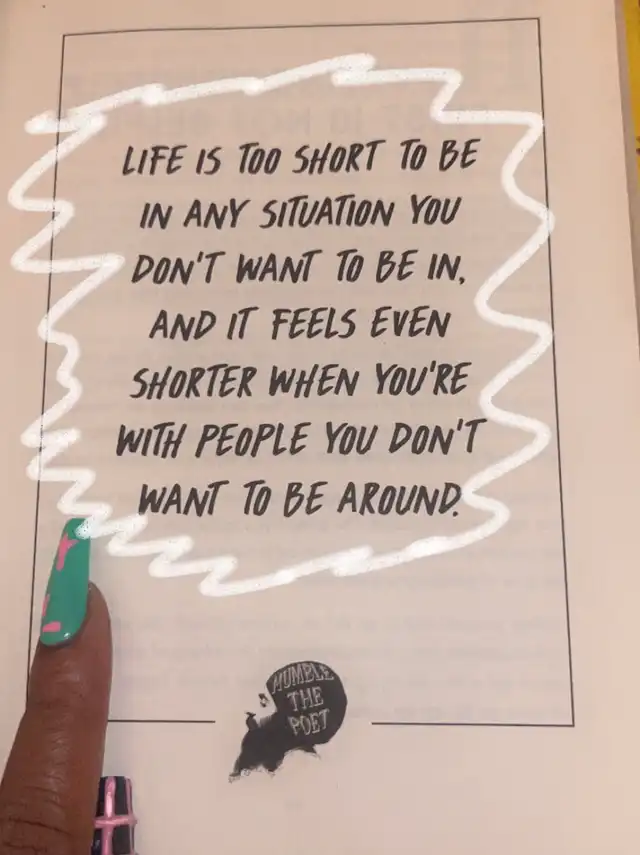 LIFE IS TOO SHORT TO BE
IN ANY SITUATION YOU
DON'T WANT TO BE IN,
AND IT FEELS EVEN
SHORTER WHEN YOU'RE
WITH PEOPLE YOU DON'T
WANT TO BE AROUND.
HUMBLE
THE
POET